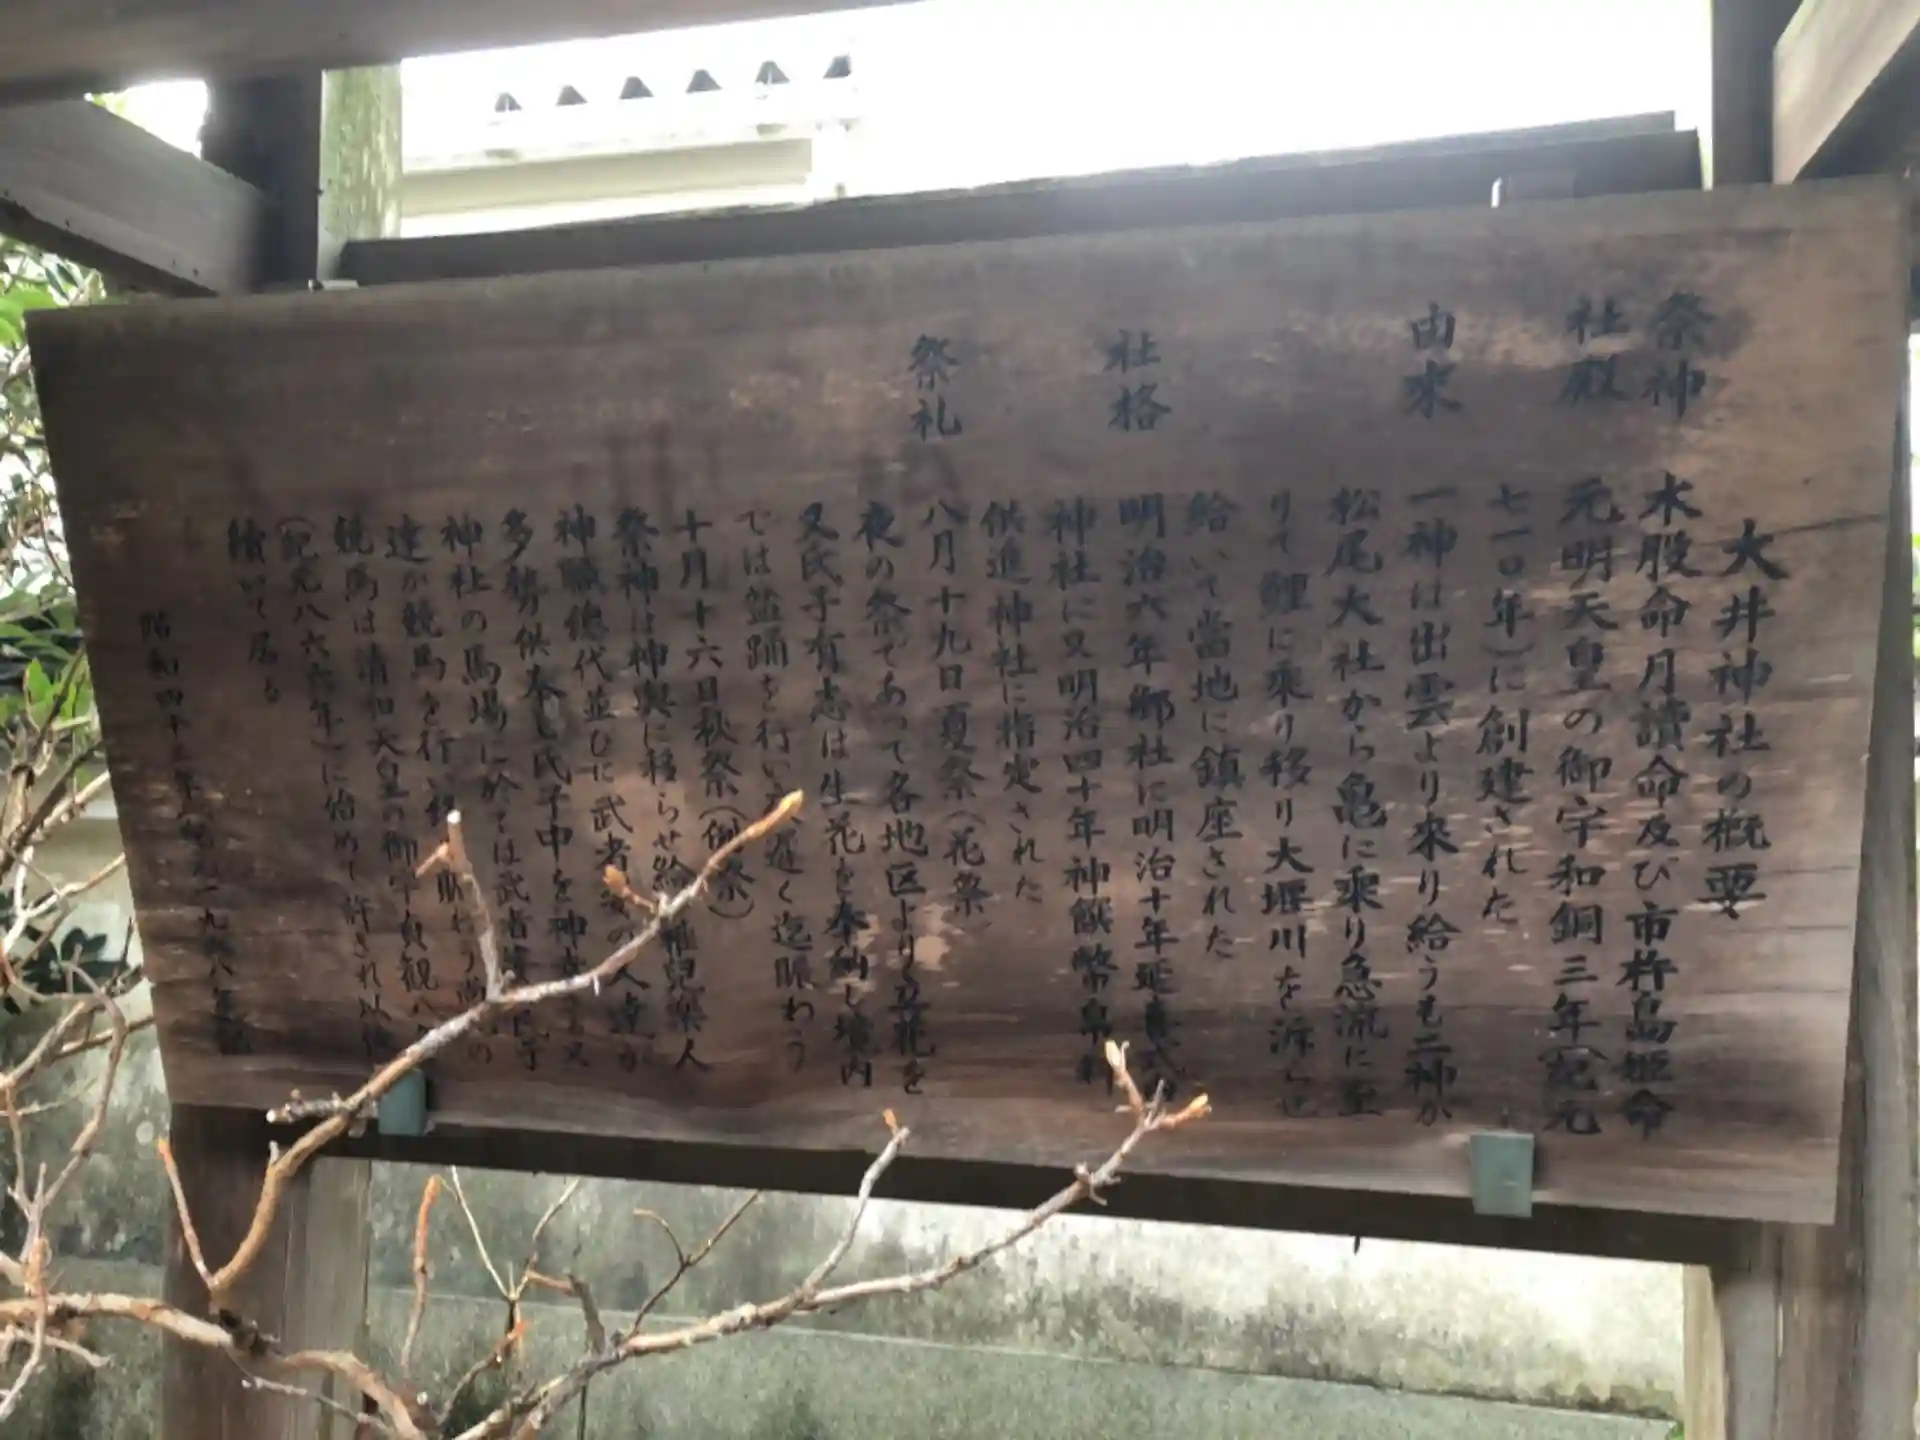 大井神社の概要
祭神 木股命月讀命及び市杵島姫命
社殿 元明天皇の御宇和銅三年(紀元
七一〇年)に創建された
由来 一神は出雲より來り給うも二神が
松尾大社から亀に乘り急流に至
りて鯉に乘り移り大堰川を泝らせ
給いて當地に鎮座された
社格 明治六年郷社に明治十年延喜式内
神社に又明治四十年神饌幣帛料
供進神社に指定された
祭礼 八月十九日夏祭(花祭
夜の祭であって各地区より立花を
又氏子有志は生花を奉納し境内
では盆踊を行い夜遅く迄賑わう
十月十六日秋祭(例祭)
祭神は神輿に移らせ給 稚児楽人
神職總代並びに武者姿の人達が
多勢供奉し氏子中を 又
神社の馬場に於ては武者 氏子
達が競馬を行い 賑わう の
競馬は清和天皇の御宇貞観八年
(紀元八六六年)に始めて許され以後
續いて居る
昭和四十三年 一九六八年